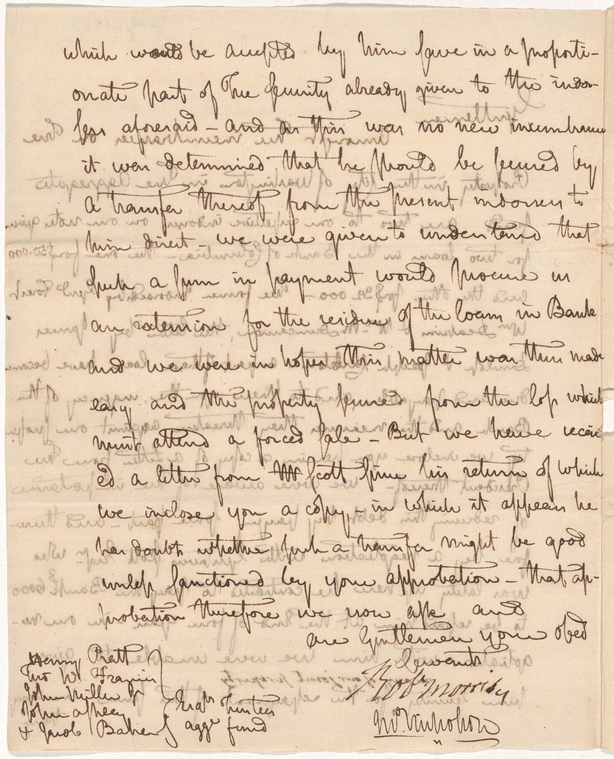 which would be accepted by him save in a proporti-
onate part of the security already given to the indor-
sers aforesaid - and as this was no new incumbrance
it was determined that he should be secured by
a transfer thereof from the present indorsers to
him direct - we were given to understand that
such a sum in payment would procure us
an extension for the residue of the loans in Bank
and we were in hopes this matter was thus made
easy and the property secured from the loss which
must attend a forced sale - But we have receiv
ed a letter from Mr Scott since his return of which
we inclose you a copy - in which it appears he
has doubts whether such a transfer might be good
unless sanctioned by your approbation - that ap-
probation therefore we now ask and
are Gentlemen your obed
Servants
Henry Pratt
Tho W. Francis
John Miller Jr
John Ashley
& Jacob Baker
Trustees
aggte fund
Robt Morris
Jno. Nicholson